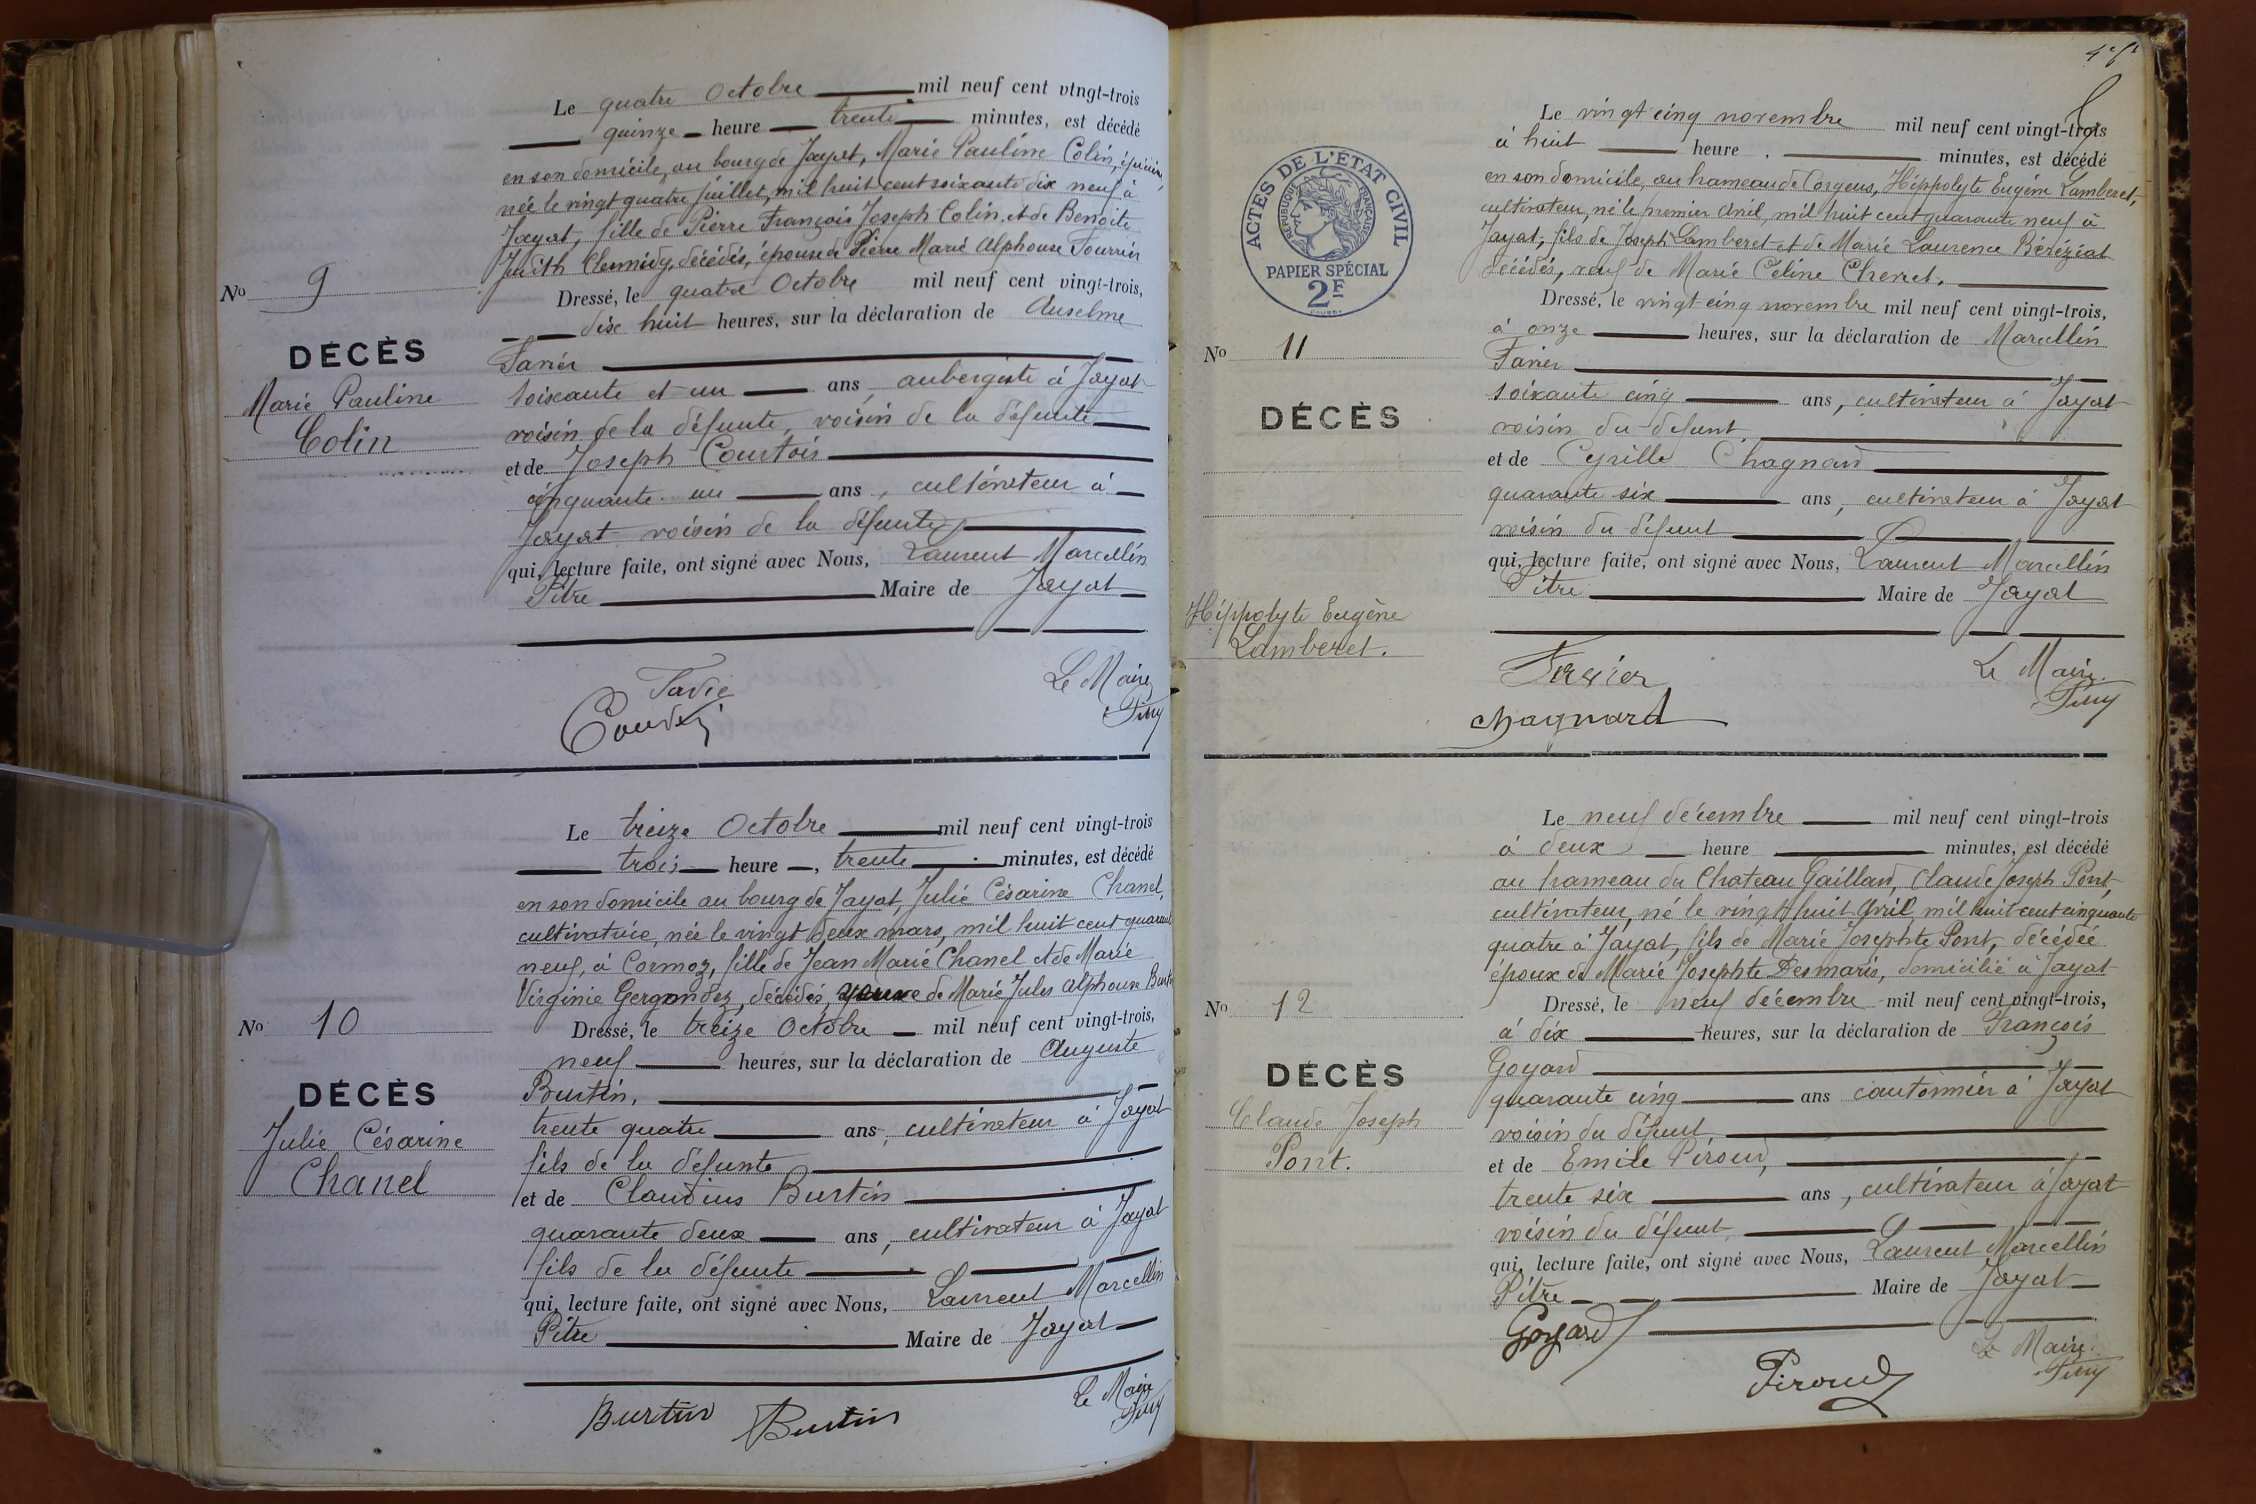 Le quatre Octobre mil neuf cent vingt-trois
quinze heure trente minutes, est décédé
en son domicile, au bourg de Jayat, Marie Pauline Colin, épicière,
née le vingt quatre Juillet, mil huit cent soixante dix neuf à
Jayat, fille de Pierre François Joseph Colin, et de Benoite
Judith décédés, épouse de Pierre Marie Alphonse Fourrier
No 9
Dressé, le quatre Octobre mil neuf cent vingt-trois,
dix huit heures, sur la déclaration de Anselme
DÉCÈS
Marie Pauline
Colin
soixante et un ans, aubergiste à Jayat
voisin de la défunte, voisin de la défunte
et de Joseph Courtois
cinquante un ans, cultivateur à
Jayat voisin de la défunte
qui, lecture faite, ont signé avec Nous, Laurent Marcellin
Pitre Maire de Jayat
Le Maire
Le treize Octobre mil neuf cent vingt-trois
trois heure, trente minutes, est décédé
en son domicile au bourg de Jayat, Julie Césarine Chanel,
cultivatrice, née le vingt deux mars, mil huit cent quarante
neuf, à Cormoz, fille de Jean Marie Chanel et de Marie
Virginie décédés, veuve de Marie Jules Alphonse Burtin
No 10
Dressé, le treize Octobre mil neuf cent vingt-trois,
neuf heures, sur la déclaration de Auguste
DÉCÈS
Julie Césarine
Chanel
Burtin,
trente quatre ans, cultivateur à Jayat
fils de la défunte
et de Claudius Burtin
quarante deux ans, cultivateur à Jayat
fils de la défunte
qui, lecture faite, ont signé avec Nous, Laurent Marcellin
Pitre Maire de Jayat
Le Maire
Burtin Burtin
ACTES DE L'ÉTAT CIVIL
RÉPUBLIQUE FRANÇAISE
PAPIER SPÉCIAL
2F
Le vingt cinq novembre mil neuf cent vingt-trois
à huit heure minutes, est décédé
en son domicile, au hameau de Hippolyte Eugène Lamberet,
cultivateur, né le premier Avril, mil huit cent quarante neuf à
Jayat, fils de Joseph Lamberet et de Marie Laurence Béréziat
décédés, veuf de Marie Céline
Dressé, le vingt cinq novembre mil neuf cent vingt-trois,
à onze heures, sur la déclaration de Marcellin
No 11
DÉCÈS
Hippolyte Eugène
Lamberet.
soixante cinq ans, cultivateur à Jayat
voisin du défunt
et de Cyrille Chagnard
quarante six ans, cultivateur à Jayat
voisin du défunt
qui, lecture faite, ont signé avec Nous, Laurent Marcellin
Pitre Maire de Jayat
Le Maire
chagnard
Le neuf décembre mil neuf cent vingt-trois
à deux heure minutes, est décédé
au hameau du Chateau Gaillard, Claude Joseph Pont,
cultivateur, né le vingt huit Avril, mil huit cent cinquante
quatre à Jayat, fils de Marie Josephte Pont, décédée
époux de Marie Josephte Desmaris, domicilié à Jayat
No 12
Dressé, le neuf décembre mil neuf cent vingt-trois,
à dix heures, sur la déclaration de François
DÉCÈS
Claude Joseph
Pont.
Goyard
quarante cinq ans cantonnier à Jayat
voisin du défunt
et de Emile Piroud,
trente six ans, cultivateur à Jayat
voisin du défunt
qui, lecture faite, ont signé avec Nous, Laurent Marcellin
Pitre Maire de Jayat
Goyard
Le Maire
Piroud